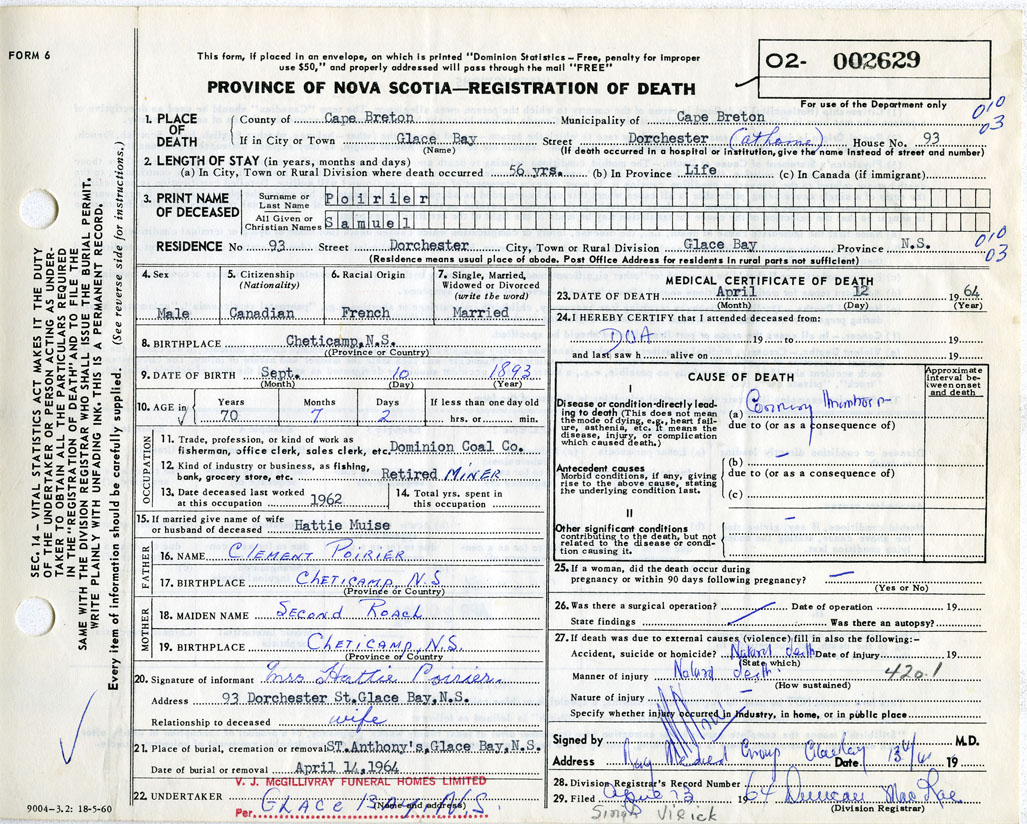 FORM 6
This form, if placed in an envelope, on which is printed "Dominion Statistics – Free, penalty for improper
use $50," and properly addressed will pass through the mail "FREE"
O2- 002629
PROVINCE OF NOVA SCOTIA—REGISTRATION OF DEATH
For use of the Department only
010
03
1. PLACE OF DEATH
County of Cape Breton Municipality of Cape Breton
If in City or Town Glace Bay Street Dorchester (at home) House No. 93
(Name) (If death occurred in a hospital or institution, give the name instead of street and number)
2. LENGTH OF STAY (in years, months and days)
(a) In City, Town or Rural Division where death occurred 56 yrs. (b) In Province Life (c) In Canada (if immigrant)
3. PRINT NAME OF DECEASED
Surname or Last Name Poirier
All Given or Christian Names Samuel
RESIDENCE No 93 Street Dorchester City, Town or Rural Division Glace Bay Province N.S.
010
03
(Residence means usual place of abode. Post Office Address for residents in rural parts not sufficient)
4. Sex
Male
5. Citizenship (Nationality)
Canadian
6. Racial Origin
French
7. Single, Married, Widowed or Divorced (write the word)
Married
8. BIRTHPLACE Cheticamp,N.S.
(Province or Country)
9. DATE OF BIRTH Sept. 10 1893
(Month) (Day) (Year)
10. AGE in
Years Months Days If less than one day old
70 7 2 hrs. or min.
OCCUPATION
11. Trade, profession, or kind of work as
fisherman, office clerk, sales clerk, etc. Dominion Coal Co.
12. Kind of industry or business, as fishing,
bank, grocery store, etc. Retired MINER
13. Date deceased last worked
at this occupation 1962
14. Total yrs. spent in
this occupation
15. If married give name of wife
or husband of deceased Hattie Muise
FATHER
16. NAME CLEMENT POIRIER
17. BIRTHPLACE CHETICAMP, N.S
(Province or Country)
MOTHER
18. MAIDEN NAME SECOND ROACH
19. BIRTHPLACE CHETICAMP, N.S.
(Province or Country
20. Signature of informant Mrs Hattie Poirier.
Address 93 Dorchester St.Glace Bay,N.S.
Relationship to deceased wife
21. Place of burial, cremation or removal ST.Anthony's,Glace Bay,N.S.
Date of burial or removal April 14,1964
V. J. McGILLIVRAY FUNERAL HOMES LIMITED
22. UNDERTAKER GLACE BAY, N.S.
(Name and address)
Per
9004–3.2: 18-5-60
MEDICAL CERTIFICATE OF DEATH
23. DATE OF DEATH April 12 1964
(Month) (Day) (Year)
24. I HEREBY CERTIFY that I attended deceased from:
DOA 19 to 19
and last saw h alive on 19
CAUSE OF DEATH
Approximate interval between onset and death
I
Disease or condition directly leading to death (This does not mean the mode of dying, e.g., heart failure, asthenia, etc. It means the disease, injury, or complication which caused death.)
(a) Coronary
due to (or as a consequence of)
Antecedent causes
Morbid conditions, if any, giving rise to the above cause, stating the underlying condition last.
(b) –
due to (or as a consequence of)
(c)
II
Other significant conditions contributing to the death, but not related to the disease or condition causing it.
–
25. If a woman, did the death occur during
pregnancy or within 90 days following pregnancy? –
(Yes or No)
26. Was there a surgical operation? Date of operation 19
State findings Was there an autopsy?
27. If death was due to external causes (violence) fill in also the following:–
Accident, suicide or homicide? Natural death Date of injury 19
(State which)
Manner of injury Natural death. 420.1
(How sustained)
Nature of injury –
Specify whether injury occurred in Industry, in home, or in public place
Signed by M.D.
Address Medical Group Date 19
28. Division Registrar's Record Number
29. Filed April 13 1964 Duncan MacRae
(Division Registrar)
SEC. 14 – VITAL STATISTICS ACT MAKES IT THE DUTY
OF THE UNDERTAKER OR PERSON ACTING AS UNDER-
TAKER TO OBTAIN ALL THE PARTICULARS REQUIRED
IN THE "REGISTRATION OF DEATH" AND TO FILE THE
SAME WITH THE DIVISION REGISTRAR WHO SHALL ISSUE THE BURIAL PERMIT.
WRITE PLAINLY WITH UNFADING INK–THIS IS A PERMANENT RECORD.
Every item of information should be carefully supplied. (See reverse side for instructions.)